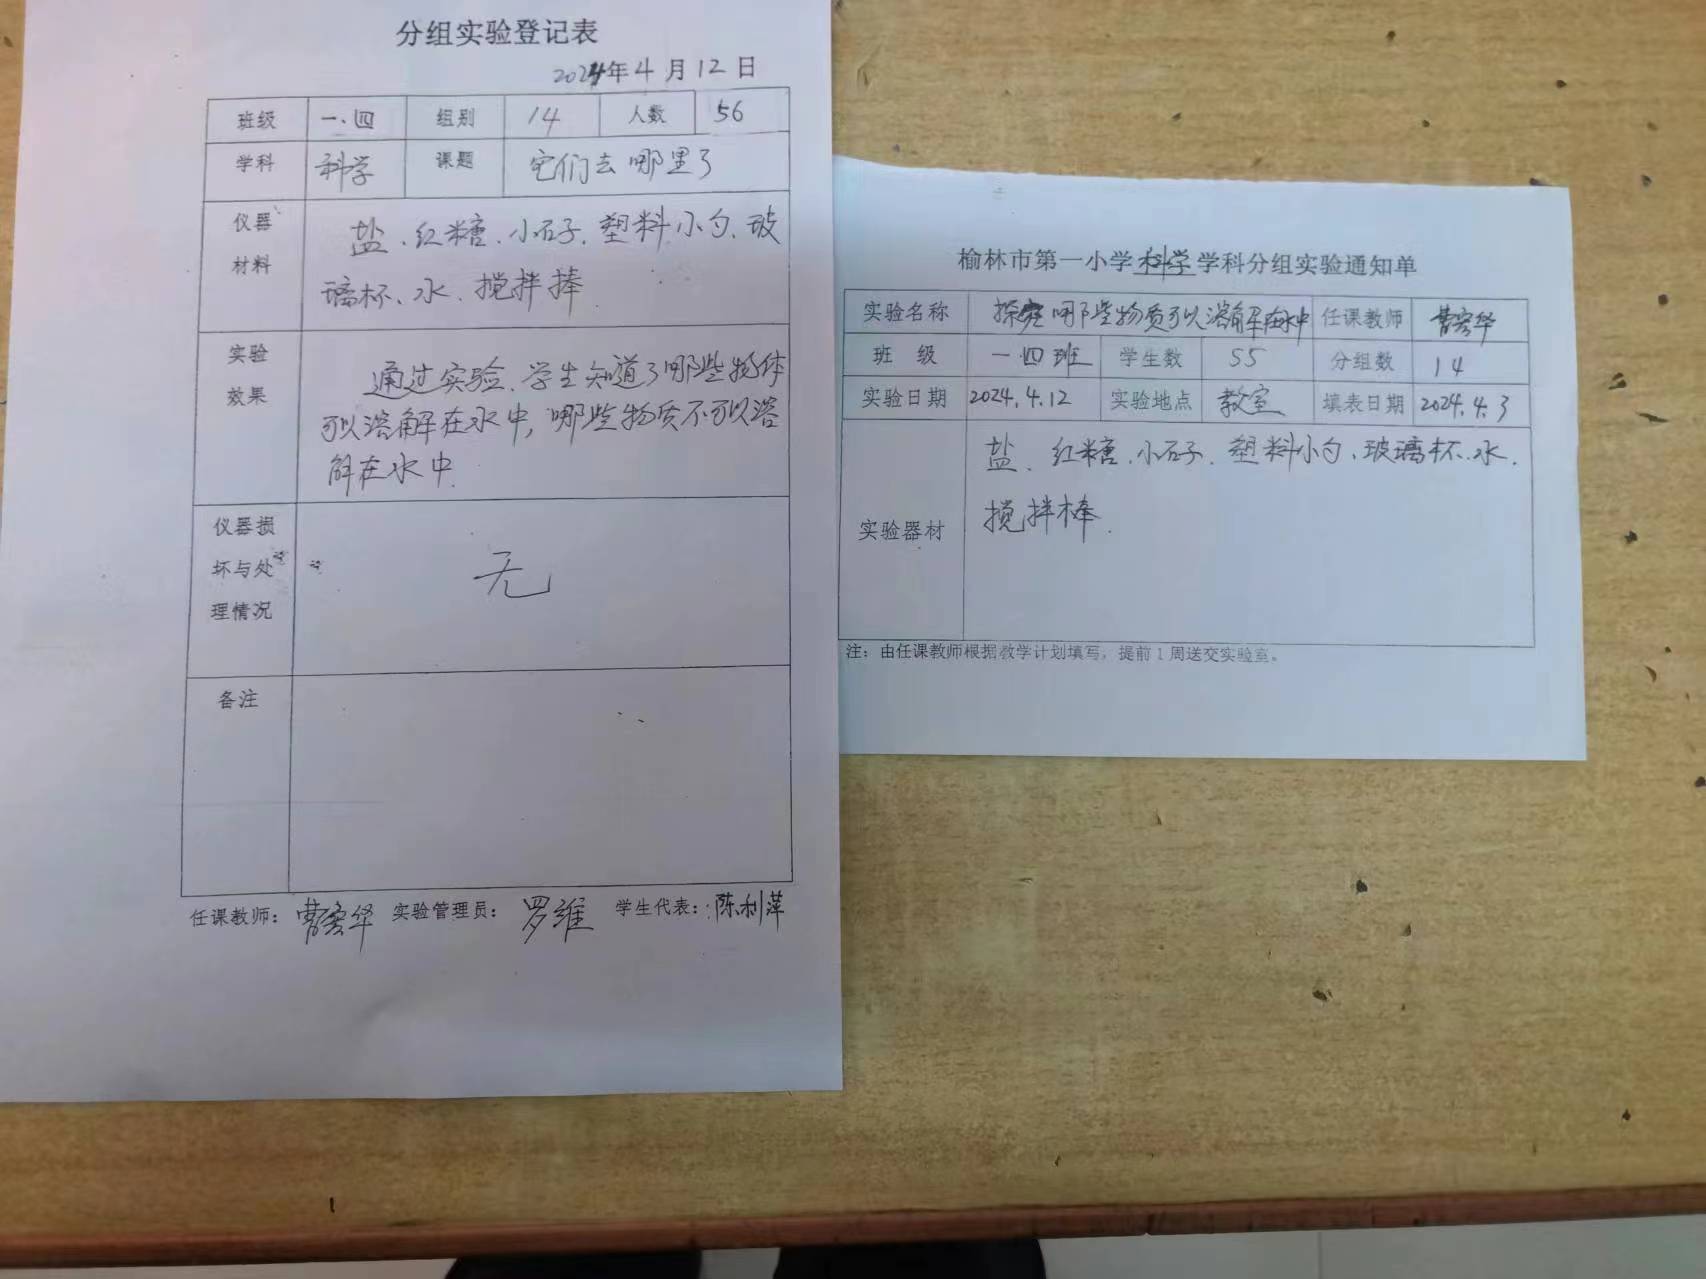 分组实验登记表
2024年4月12日
班级 一.四 组别 14 人数 56
学科 科学 课题 它们去哪里了
仪器材料 盐、红糖、小石子、塑料小勺、玻
璃杯、水、搅拌棒
实验效果 通过实验、学生知道了哪些物体
可以溶解在水中,哪些物质不可以溶
解在水中.
仪器损坏与处理情况 无
备注
任课教师: 实验管理员: 罗维 学生代表: 陈利萍
榆林市第一小学科学学科分组实验通知单
实验名称 探究哪些物质可以溶解在水中 任课教师
班 级 一.四班 学生数 55 分组数 14
实验日期 2024.4.12 实验地点 教室 填表日期 2024.4.3
实验器材 盐、红糖、小石子、塑料小勺、玻璃杯、水、
搅拌棒.
注:由任课教师根据教学计划填写,提前1周送交实验室。